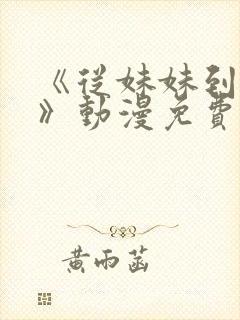 《從妹妹到
》動漫免費
黃雨菡